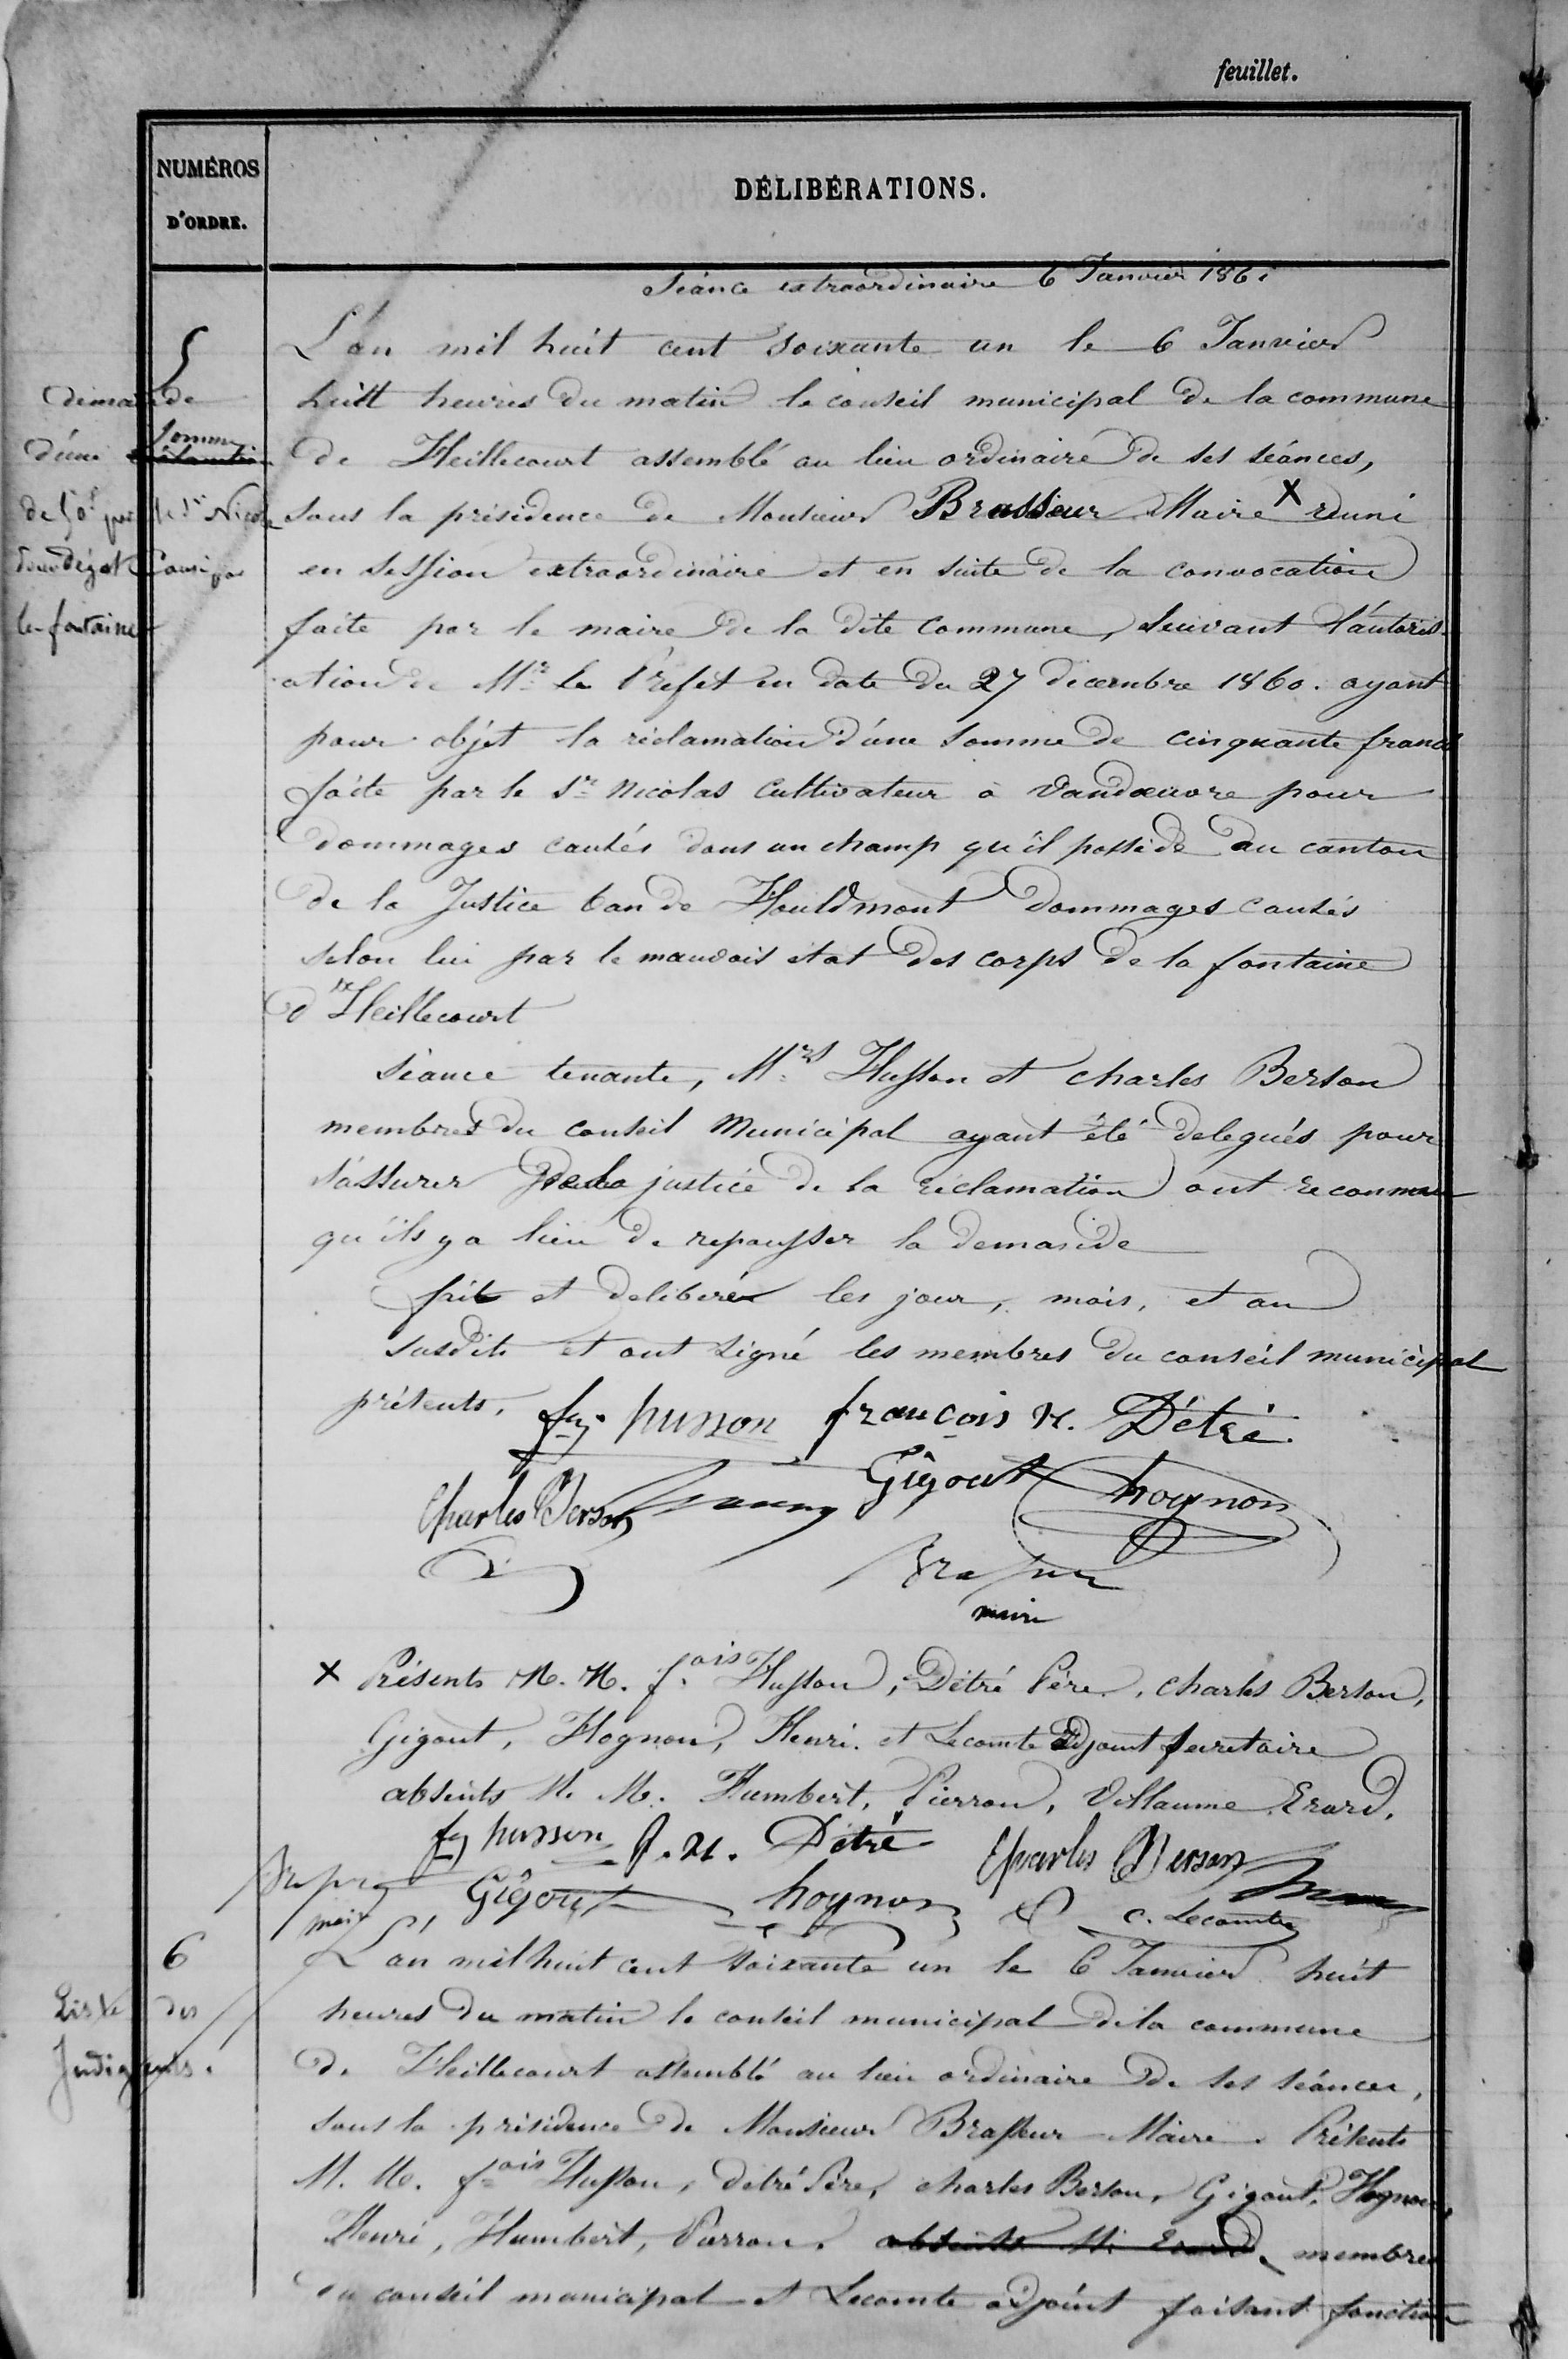 feuillet.
NUMÉROS
D'ORDRE.
DÉLIBÉRATIONS.
Séance extraordinaire 6 Janvier 1861
5
demande
d'une somme
de 50f par le Sr Nicolas
pour dégat causé par
les fontaines
L'an mil huit cent soixante un le 6 Janvier
huit heures du matin le conseil municipal de la commune
de Heillecourt assemblé au lieu ordinaire de ses séances,
sous la présidence de Monsieur Brasseur Maire x réuni
en session extraordinaire et en suite de la convocation
faite par le maire de la dite commune, suivant l'autoris-
ation de Mr le Préfet en date du 27 décembre 1860. ayant
pour objet la réclamation d'une somme de cinquante francs
faite par le Sr Nicolas cultivateur à Vandœuvre pour
dommages causés dans un champ qu'il possède au canton
de la Justice ban de Houldmont dommages causés
selon lui par le mauvais état des corps de la fontaine
d'Heillecourt
Séance tenante, Mrs Husson et charles Berson
membres du conseil municipal ayant été delegués pour
s'assurer de la justice de la réclamation ont reconnu
qu'ils y a lieu de repousser la demande
fait et deliberé les jour, mois, et an
susdits et ont signé les membres du conseil municipal
présents. fs husson françois N. Détré
Charles Berson Gigout hognon
Brasseur
maire
x Présents M. M. f.ois Husson, Détré Père, charles Berson,
Gigout, Hognon, Henri. et Lecomte adjoint secretaire
absents M. M. Humbert, Pierron, Villaume Erard.
fs husson f. N. Détré Charles Berson
Brasseur Gigout hognon c. Lecomte
maire
6
Liste des
Indigents.
L'an mil huit cent soixante un le 6 Janvier huit
heures du matin le conseil municipal de la commune
de Heillecourt assemblé au lieu ordinaire de ses séances,
sous la présidence de Monsieur Brasseur Maire. Présents
M. M. fois Husson, detré Père, charles Berson, Gigout, Hognon,
Henri, Humbert, Pierron. absents M. Erard, membres
du conseil municipal et Lecomte adjoint faisant fonction